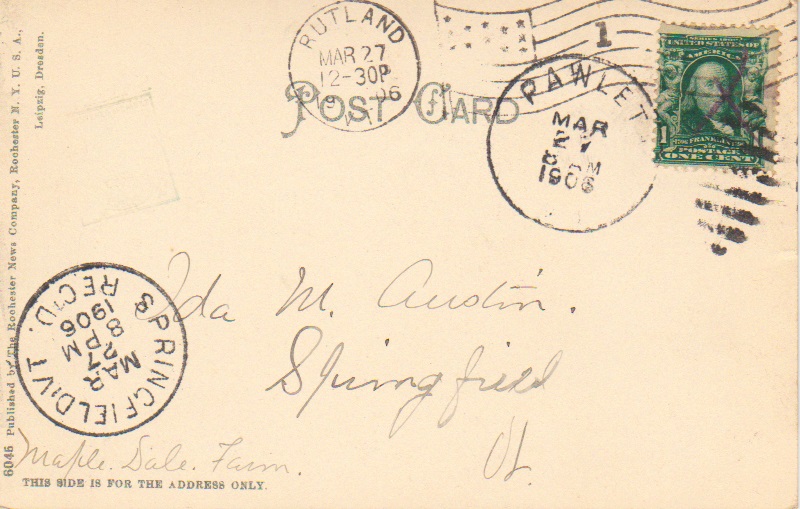 RUTLAND
MAR 27
12-30P
1
POST CARD
PAWLET
MAR
27
1906
SERIES 1902
UNITED STATES OF
AMERICA
FRANKLIN
POSTAGE
1 ONE CENT
6045 Published by The Rochester News Company, Rochester N. Y. U. S. A.,
Leipzig, Dresden.
SPRINGFIELD, VT
MAR
1906
REC'D.
Ida M. Austin.
Springfield
Vt.
Maple. Dale. Farm.
THIS SIDE IS FOR THE ADDRESS ONLY.